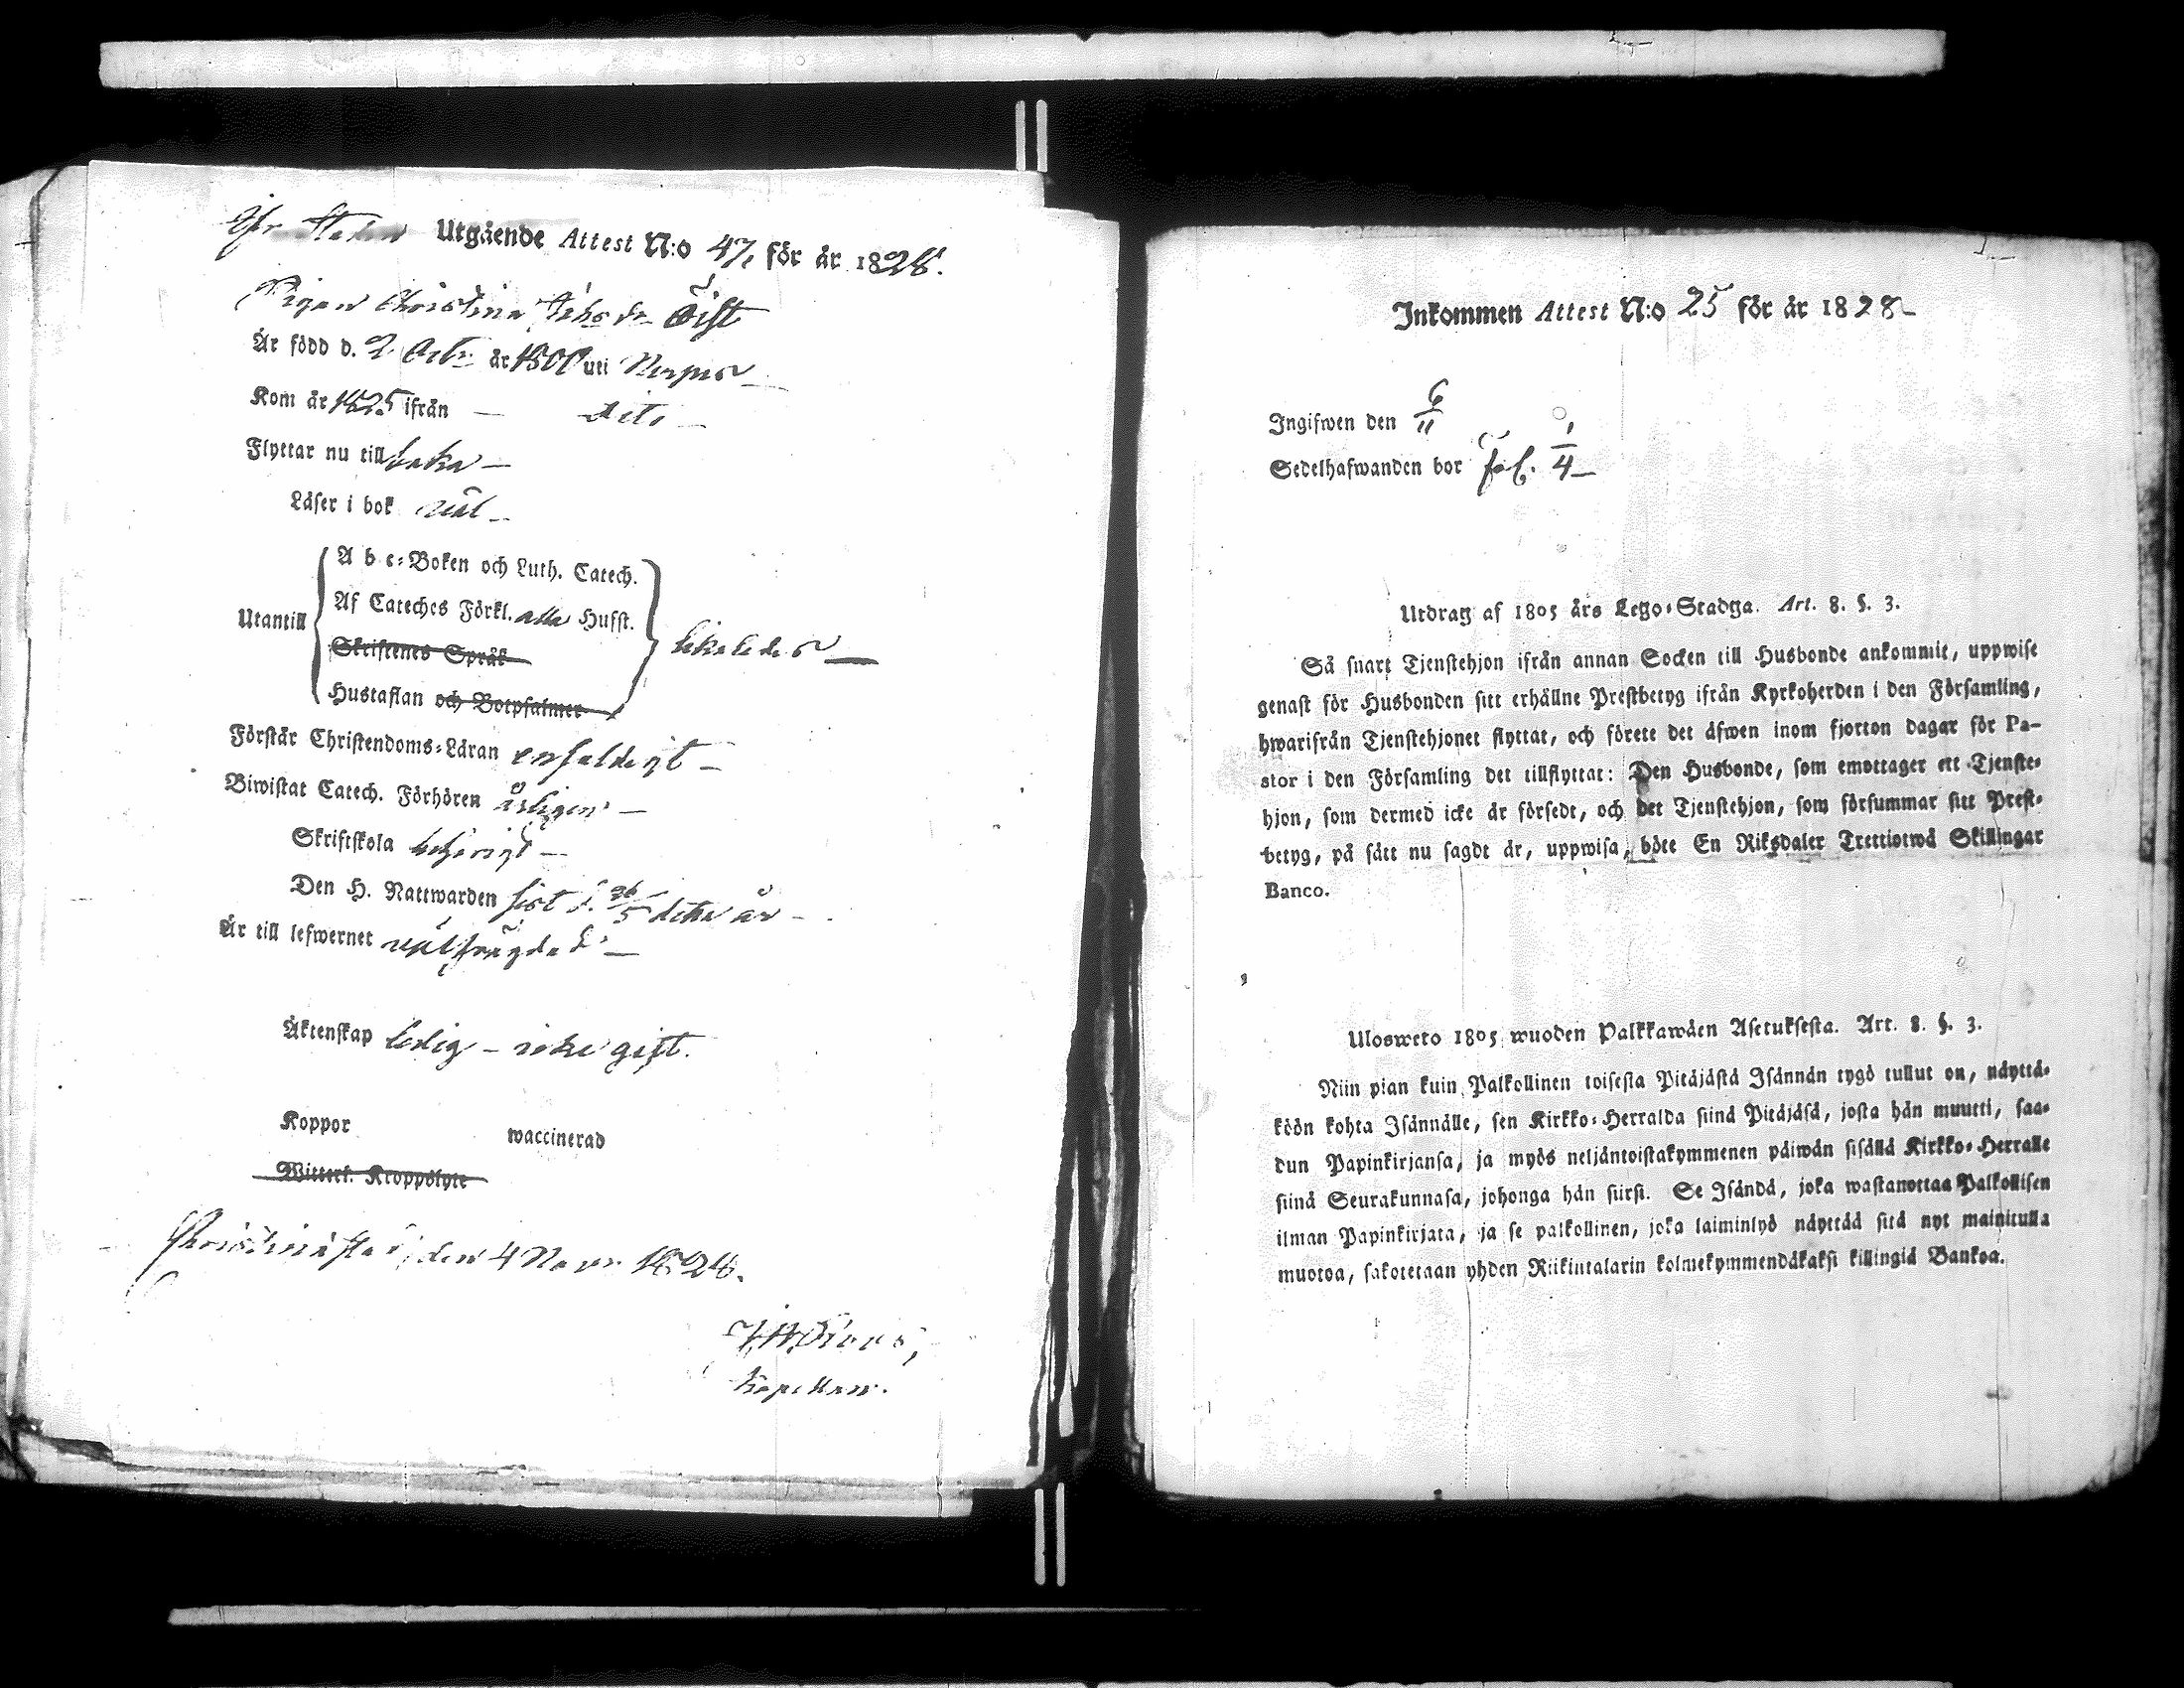 Utgående Attest N:o 47, för år 1828.
Pigan Christina Öist
Är född d. 2 Octr år 1800 uti Nerpes
Kom år 1825 ifrån — dito —
Flyttar nu till baka —
Läser i bok väl —
A b c-Boken och Luth. Catech.
Af Cateches Förkl. alla Husst.
Utantill
Skriftenes Språk
likaledes —
Hustaflan och Botpsalmer
Förstår Christendoms-Läran enfaldigt —
Biwistat Catech. Förhören årligen —
Skriftskola behörigt —
Den H. Nattwarden sist d. 26/5 detta år —
Är till lefwernet välfrägdad —
Äktenskap ledig — icke gift.
Koppor waccinerad
Witterl. Kroppslyte
Christinæstad den 4 Novr 1828.
Kapellan.
Inkommen Attest N:o 25 för år 1828
Ingifwen den 6/11
Sedelhafwanden bor fol. 1/4
Utdrag af 1805 års Lego-Stadga. Art. 8. §. 3.
Så snart Tjenstehjon ifrån annan Socken till Husbonde ankommit, uppwise
genast för Husbonden sitt erhållne Prestbetyg ifrån Kyrkoherden i den Församling,
hwarifrån Tjenstehjonet flyttat, och förete det äfwen inom fjorton dagar för Pa-
stor i den Församling det tillflyttat: Den Husbonde, som emottager ett Tjenste-
hjon, som dermed icke är försedt, och det Tjenstehjon, som försummar sitt Prest-
betyg, på sätt nu sagdt är, uppwisa, böte En Riksdaler Trettiotwå Skillingar
Banco.
Ulosweto 1805 wuoden Palkkawäen Asetuksesta. Art. 8. §. 3.
Niin pian kuin Palkollinen toisesta Pitäjästä Isännän tygö tullut on, näyttä-
köön kohta Isännälle, sen Kirkko-Herralda siinä Pitäjäsä, josta hän muutti, saa-
dun Papinkirjansa, ja myös neljäntoistakymmenen päiwän sisällä Kirkko-Herralle
siinä Seurakunnasa, johonga hän siirsi. Se Isändä, joka wastanottaa Palkollisen
ilman Papinkirjata, ja se palkollinen, joka laiminlyö näyttää sitä nyt mainitulla
muotoa, sakotetaan yhden Riikintalarin kolmekymmendäkaksi killingiä Bankoa.